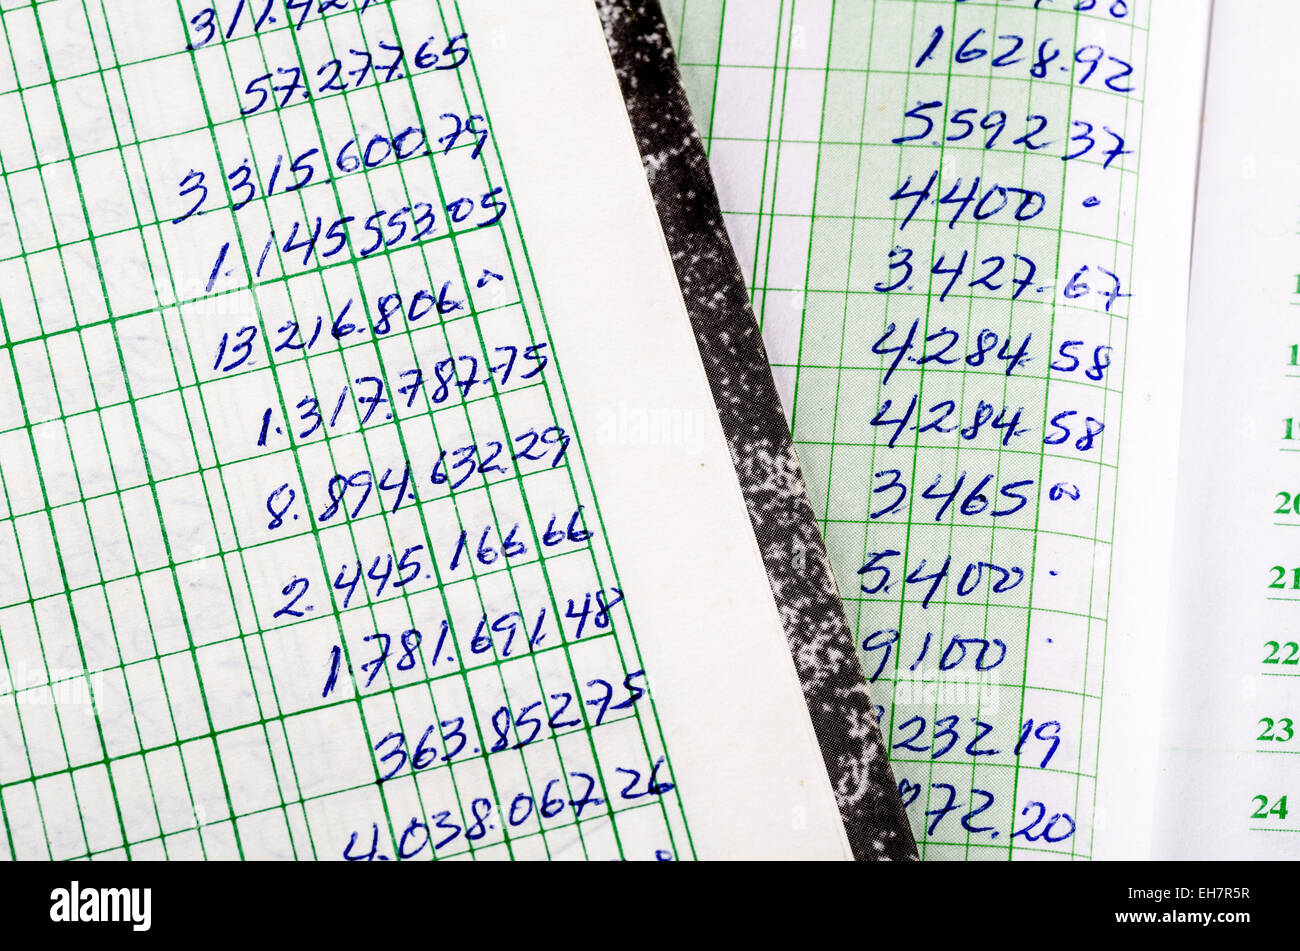 57.277.65
3.315.600.79
1.14555305
13.216.806.00
1.317.787.75
8.894.63229
2.445.16666
1.781.691.48
363.85275
4.038.067.26
1.628.92
5.59237
4400 .
3.427.67
4.284.58
4284.58
3.46500
5.400 .
9100 .
232 19
872.20
20
21
22
23
24
alamy
Image ID: EH7R5R
www.alamy.com